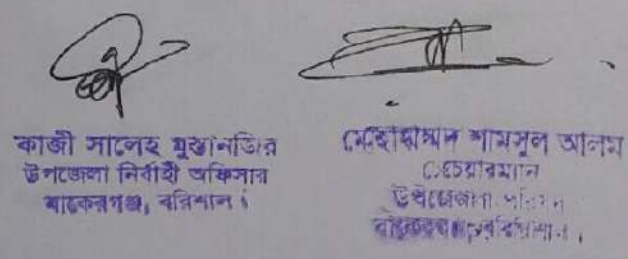 কাজী সালেহ মুস্তানজির
উপজেলা নির্বাহী অফিসার
বাকেরগঞ্জ, বরিশাল।
মোহাম্মদ শামসুল আলম
চেয়ারম্যান
উপজেলা পরিষদ
বাকেরগঞ্জ, বরিশাল।